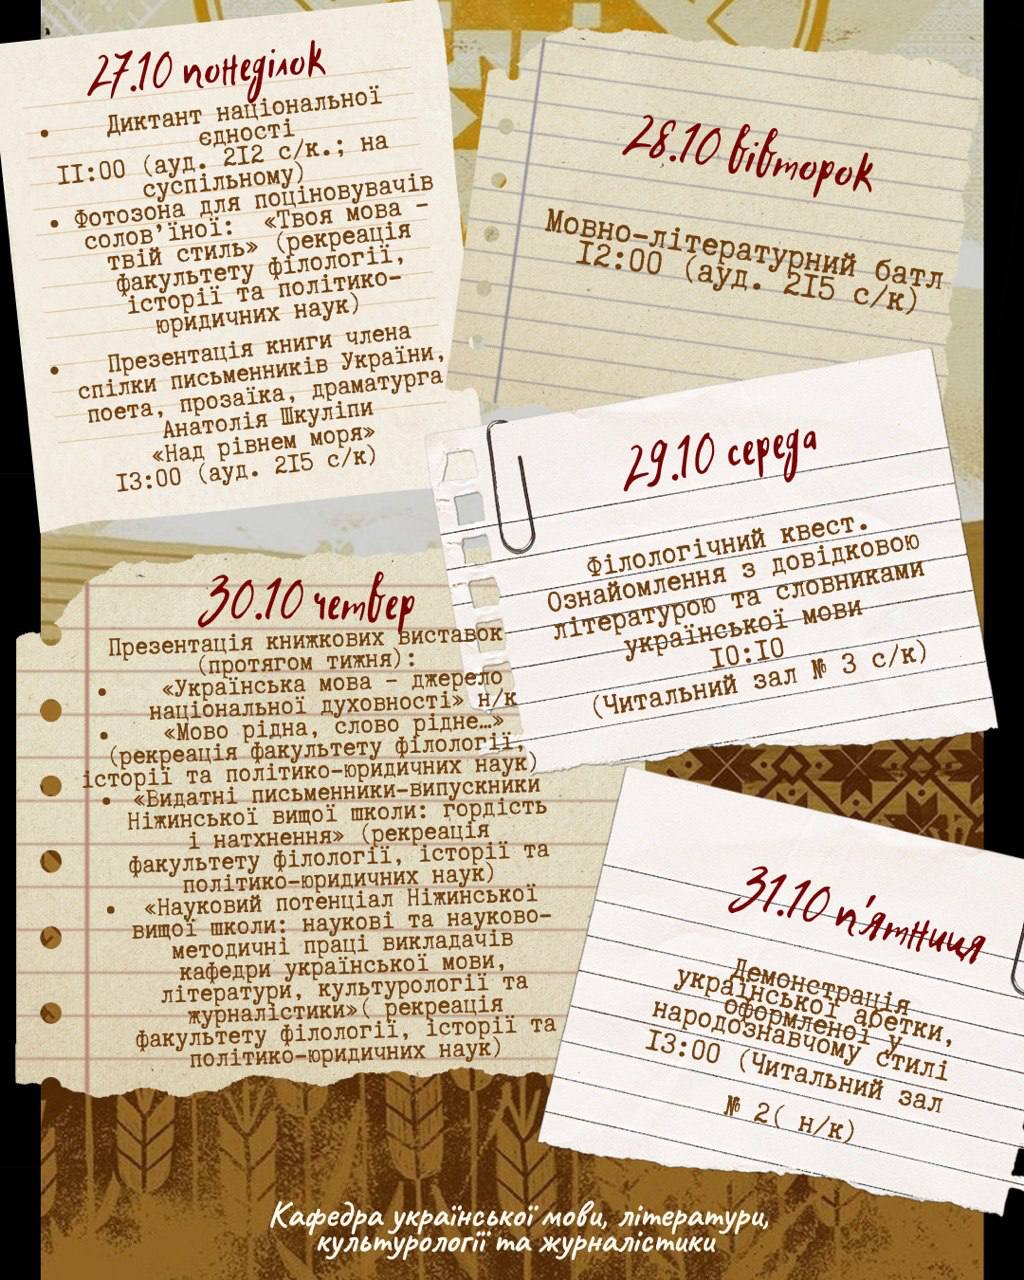 27.10 понеділок
• Диктант національної
єдності
11:00 (ауд. 212 с/к.; на
суспільному)
• Фотозона для поціновувачів
солов’їної: «Твоя мова –
твій стиль» (рекреація
факультету філології,
історії та політико-
юридичних наук)
• Презентація книги члена
спілки письменників України,
поета, прозаїка, драматурга
Анатолія Шкуліпи
«Над рівнем моря»
13:00 (ауд. 215 с/к)
28.10 вівторок
Мовно-літературний батл
12:00 (ауд. 215 с/к)
29.10 середа
Філологічний квест.
Ознайомлення з довідковою
літературою та словниками
української мови
10:10
(Читальний зал № 3 с/к)
30.10 четвер
Презентація книжкових виставок
(протягом тижня):
• «Українська мова – джерело
національної духовності» н/к
• «Мово рідна, слово рідне…»
(рекреація факультету філології,
історії та політико-юридичних наук)
• «Видатні письменники-випускники
Ніжинської вищої школи: гордість
і натхнення» (рекреація
факультету філології, історії та
політико-юридичних наук)
• «Науковий потенціал Ніжинської
вищої школи: наукові та науково-
методичні праці викладачів
кафедри української мови,
літератури, культурології та
журналістики»( рекреація
факультету філології, історії та
політико-юридичних наук)
31.10 п'ятниця
Демонстрація
української абетки,
оформленої у
народознавчому стилі
13:00 (Читальний зал
№ 2( н/к)
Кафедра української мови, літератури,
культурології та журналістики